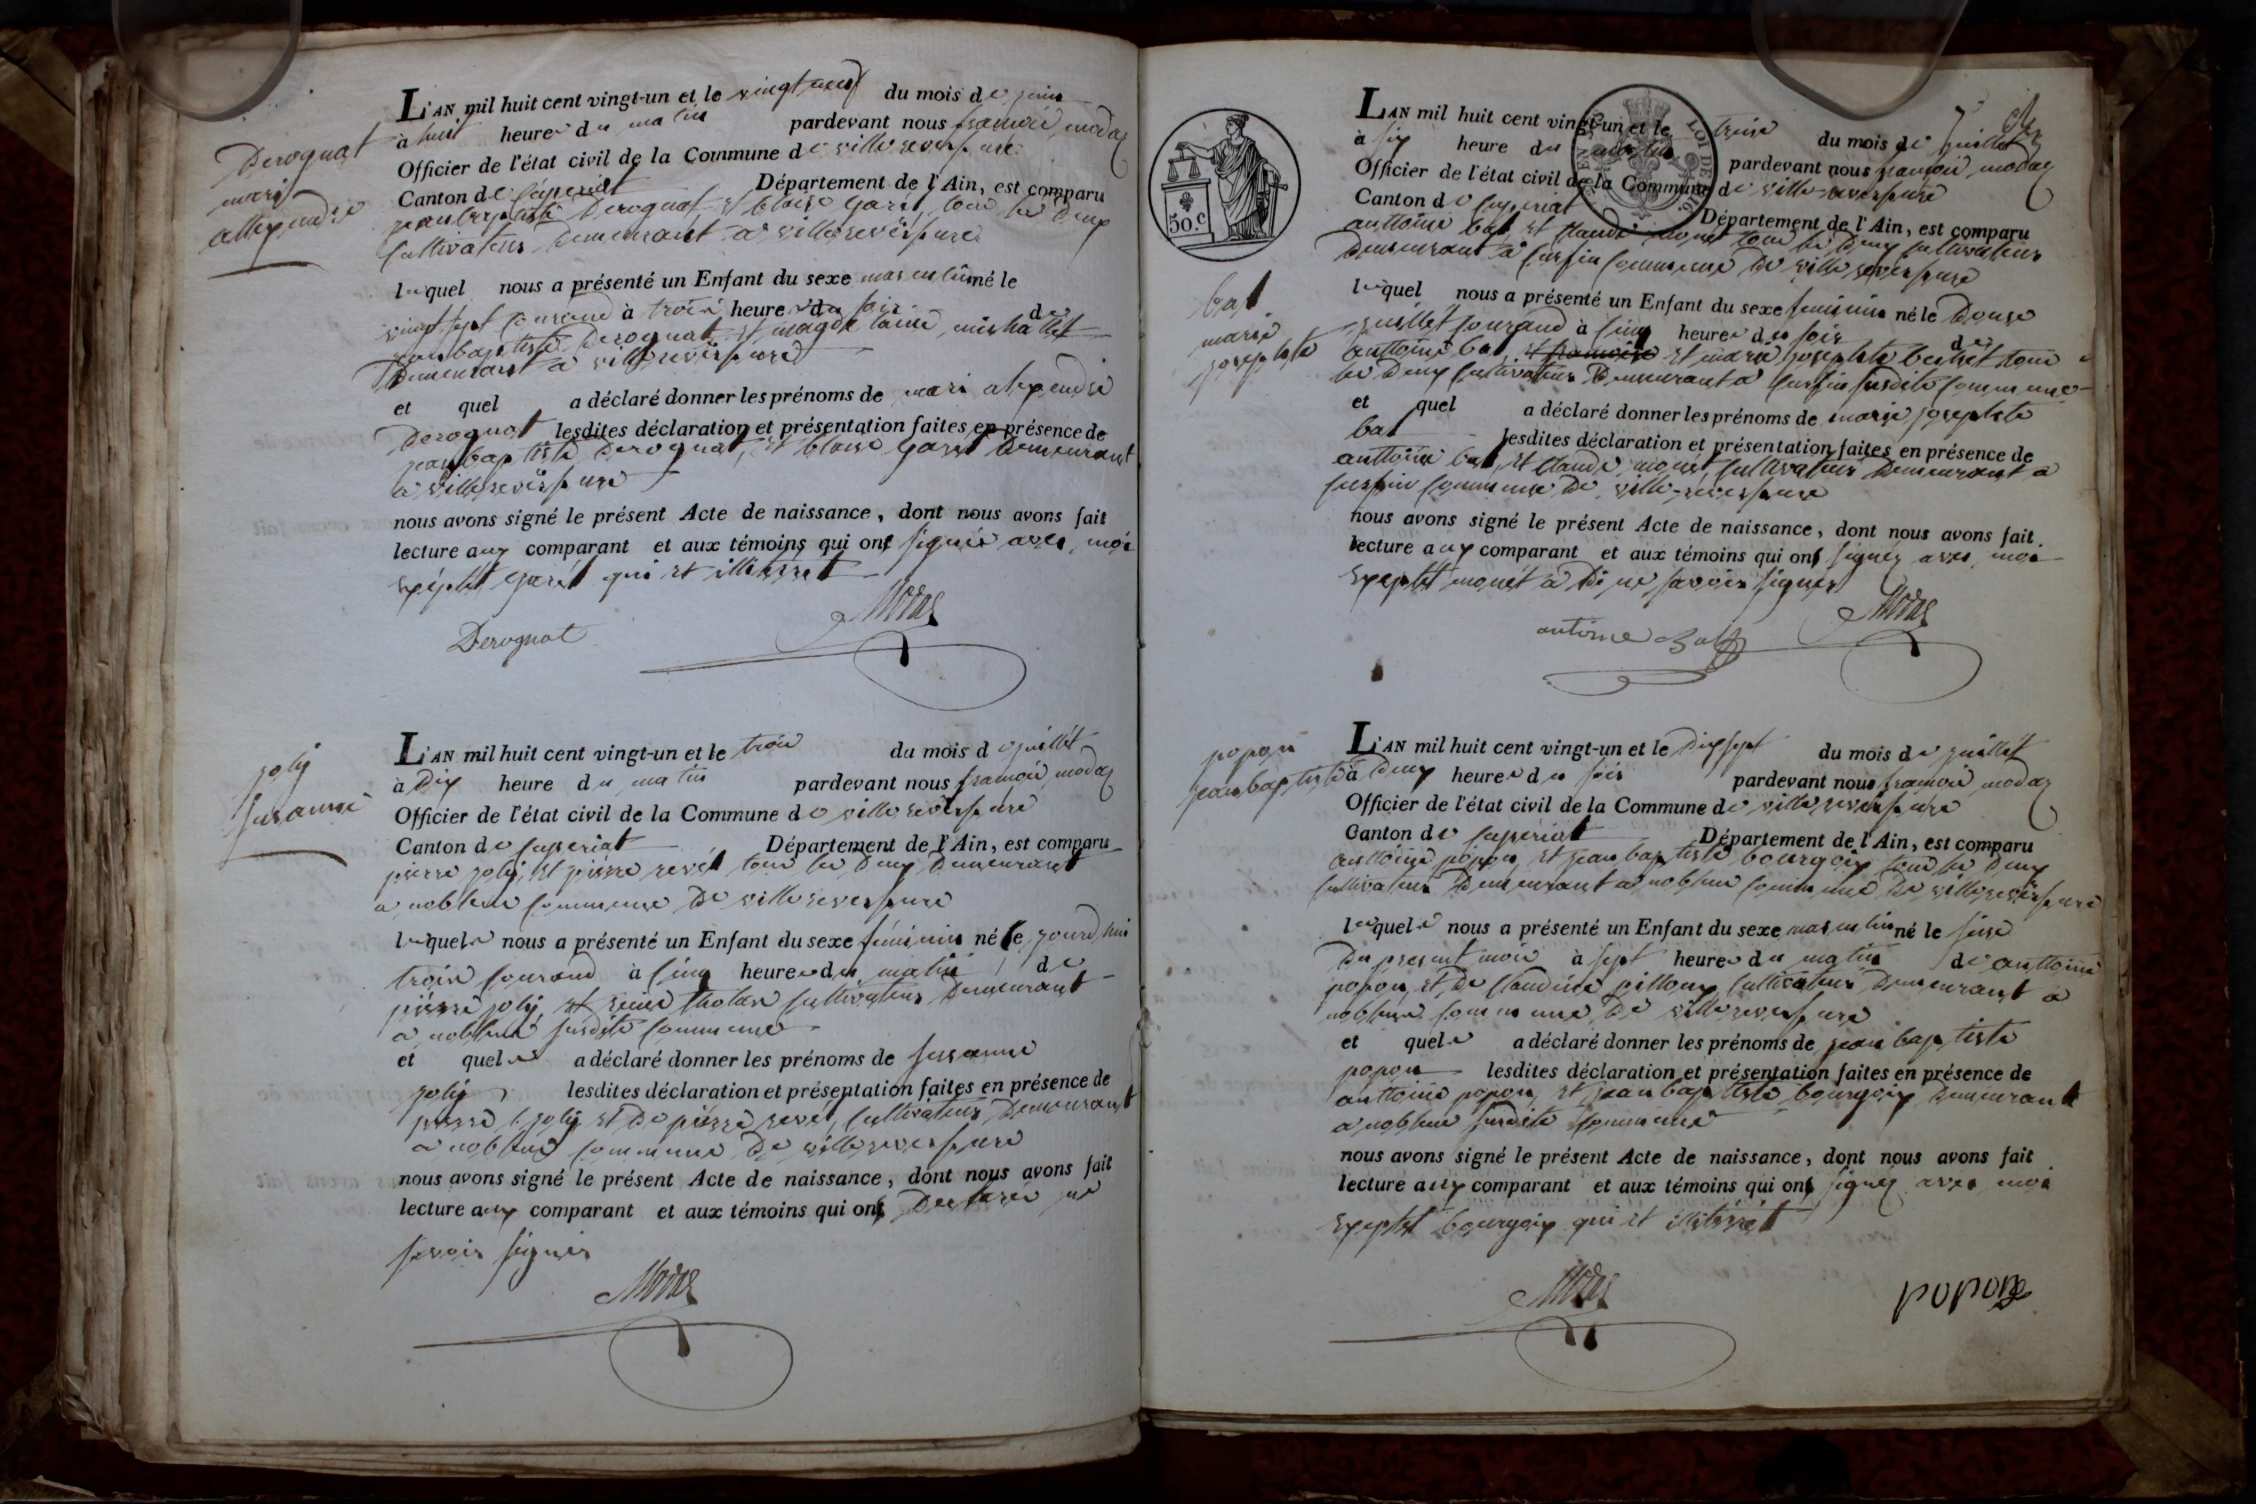 Derognat
mari
allexendre
L'AN mil huit cent vingt-un et le vingt neuf du mois de juin
à huit heure du matin pardevant nous framoie modaz
Officier de l'état civil de la Commune de villereversure
Canton de Ceyseriat Département de l'Ain, est comparu
jean baptiste Derognat, et blaise garet tous les deux
Cultivateurs Demeurant à villereversure
lequel nous a présenté un Enfant du sexe masculin né le
vingt sept Courand à trois heure du soir de
jean baptiste Derognat et magdelaine michallet
Demeurant à villereversure
et quel a déclaré donner les prénoms de mari alexendre
Derognat lesdites déclaration et présentation faites en présence de
jean baptiste Derognat, et blaise garet Demeurant
a villereversure
nous avons signé le présent Acte de naissance, dont nous avons fait
lecture aux comparant et aux témoins qui ont signés avec moi
exeptét garet qui et illiterret
Derognat Modas
joly
susanne
L'AN mil huit cent vingt-un et le trois du mois de juillet
à Dix heure du matin pardevant nous framoie modaz
Officier de l'état civil de la Commune de villereversure
Canton de Ceyseriat Département de l'Ain, est comparu
pierre joly, et pierre revét tous les deux Demeurant
a noblens Commune De villereversure
lequele nous a présenté un Enfant du sexe féminin né le jourdhui
trois Courand à Cinq heure du matin de
pierre joly, et Cultivateurs Demeurant
a noblens susdite Commune
et quele a déclaré donner les prénoms de susanne
joly lesdites déclaration et présentation faites en présence de
pierre joly et De pierre revét, Cultivateurs Demeurant
a noblens Commune De villereversure
nous avons signé le présent Acte de naissance, dont nous avons fait
lecture aux comparant et aux témoins qui ont Declarés ne
savoir signer
Modas
50.c
LOI DE 1816.
bal
marie
josephte
L'AN mil huit cent vingt-un et le treise du mois de juillet
à six heure du matin pardevant nous framoie modaz
Officier de l'état civil de la Commune de villereversure
Canton de Ceyseriat Département de l'Ain, est comparu
anttoine bal et Claude moret tous les deux Cultivateurs
Demeurant à Cursin Commune De villereversure
lequel nous a présenté un Enfant du sexe feminin né le Douse
juillet Courand à Cinq heure du soir de
anttoine bal, et marie josephte bechet tous
les deux Cultivateurs Demeurant a Cursin susdite Commune
et quel a déclaré donner les prénoms de marie josephte
bal lesdites déclaration et présentation faites en présence de
anttoine bal, et Claude moret Cultivateurs Demeurant a
Cursin Commune De villereversure
nous avons signé le présent Acte de naissance, dont nous avons fait
lecture aux comparant et aux témoins qui ont signéz avec moi
exeptét moret a Di ne savoir signer
antoine Bal Modas
popon
jean baptiste
L'AN mil huit cent vingt-un et le Dix sept du mois de juillet
à Deux heure du soir pardevant nous framoie modaz
Officier de l'état civil de la Commune de villereversure
Canton de Ceyseriat Département de l'Ain, est comparu
anttoine popon, et jean baptiste bourgoix tous les deux
Cultivateurs Demeurant a noblens Commune De villereversure
lequele nous a présenté un Enfant du sexe masculin né le seise
Du present mois à sept heure du matin de anttoine
popon, et De Claudine pilloux Cultivateurs Demeurant a
noblens Commune De villereversure
et quele a déclaré donner les prénoms de jean baptiste
popon lesdites déclaration et présentation faites en présence de
anttoine popon, et jean baptiste bourgoix Demeurant
a noblens susdite Commune
nous avons signé le présent Acte de naissance, dont nous avons fait
lecture aux comparant et aux témoins qui ont signéz avec moi
exeptét bourgoix qui et illiterrét
Modas popon